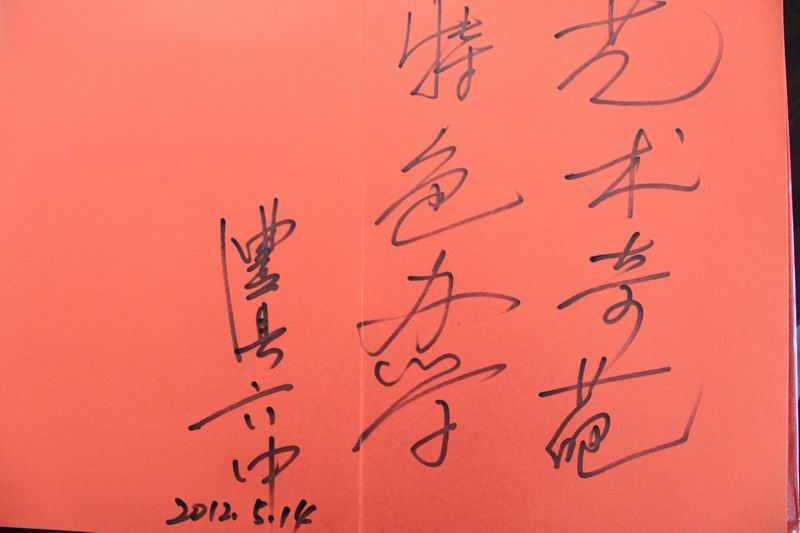 艺术奇葩
特色办学
澧县六中
2012.5.14